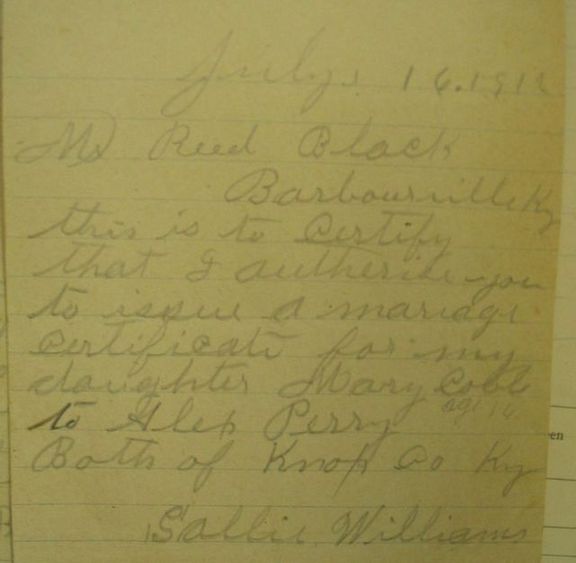 July 16.191
Mr Reed Black
Barbourville Ky
this is to Certify
that I autherise you
to issue a mariage
Certificate for my
daughter Mary Cobb
age
to Alex Perry
Both of Knox Co Ky
Sallie Williams
en